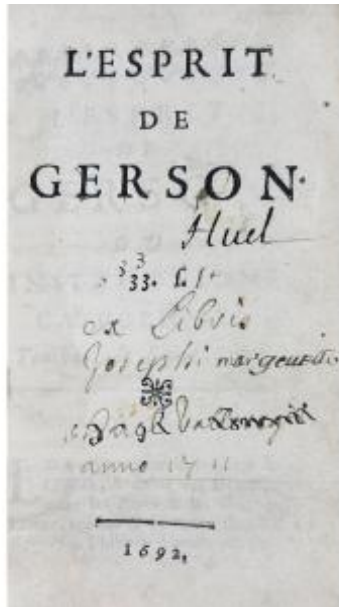 L'ESPRIT
DE
GERSON.
Huel
33
33.
ex Libris
Josephi
anno 1711
1692,